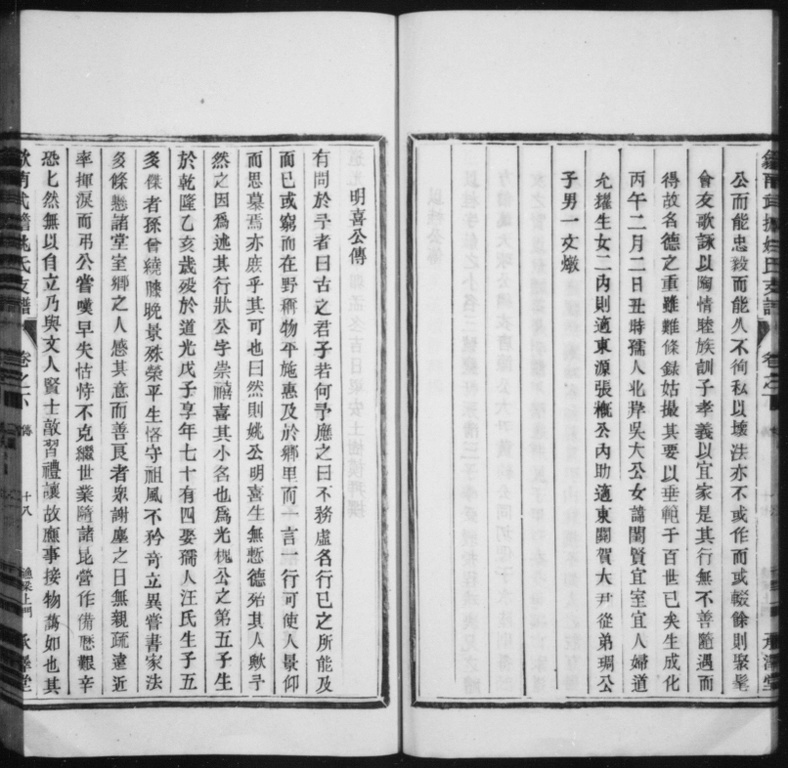 公而能忠毅而能久不徇私以壞法亦不或作而或輟餘則聚髦
會友歌詠以陶情睦族訓子孝義以宜家是其行無不善隨遇而
得故名德之重雖難條錄姑撮其要以垂範于百世已矣生成化
丙午二月二日丑時孺人北岸吳大公女諱閨賢宜室宜人婦道
允耀生女二內則適東源張橛公內助適東關賀大尹從弟珦公
子男一文燉
明喜公傳
有問於予者曰古之君子若何予應之曰不務虛名行已之所能及
而已或窮而在野稱物平施惠及於鄉里而一言一行可使人景仰
而思慕焉亦庶乎其可也曰然則姚公明喜生無慙德殆其人歟予
然之因爲述其行狀公字崇禧喜其小名也爲光槐公之第五子生
於乾隆乙亥歲歿於道光戊子享年七十有四娶孺人汪氏生子五
多傑者孫曾繞膝晚景殊榮平生恪守祖風不矜奇立異嘗書家法
多條懸諸堂室鄉之人感其意而善良者眾謝塵之日無親疏遠近
率揮淚而弔公嘗嘆早失怙恃不克繼世業隨諸昆營作備歷艱辛
恐匕然無以自立乃與文人賢士敵習禮讓故應事接物藹如也其
歙南武擔姚氏支譜 卷之下 傳 十八 漁梁上門 承澤堂